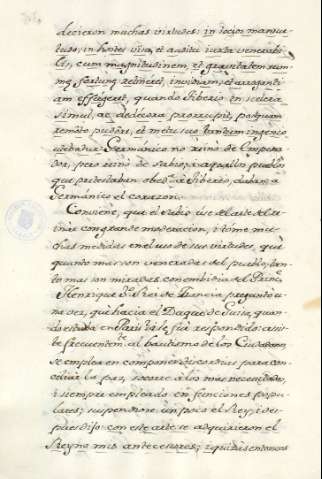 decieron muchas virtudes; in socios mansue-
tudo, in hostes viva, et auditu iuxta venerabi-
lis, cum magnitudinem, et gravitatem sum-
mę fortunę retineret, invidiam, et arroganti-
am effugerat, quando Tiberio in scelera
simul, ac dedecora prorrupit, postquam
remoto pudore, et metu suo tandum ingenio
utebatur. Germanico no reino de Empera-
dor, pero reinó de Sabio, i aquellos pueblos
que prestaban obedᵃ. à Tiberio, daban a
Germánico el corazon.
Conviene, que el Sabio use del arte del rei-
nar con grande moderacion, i tome mu-
chas medidas en el uso de sus virtudes, que
quando mas son veneradas del pueblo, tan-
to mas son miradas con embidia del Princᵉ.
Henrique 3º Rei de Francia preguntó u-
na vez, que hacia el Duque de Guisa, quan-
do estaba en Paris i le fue respondido: assis-
te frecuentemᵗᵉ al bautismo de los Ciudadanos
se emplea en componer discordias para con-
ciliar la paz, socorre à los mas necesitados,
i siempre empleado en funciones popu-
lares; suspendiose un poco el Rey, i des-
pues dijo: con este arte se adquirieron el
Reyno mis antecesores; i quizás entonces